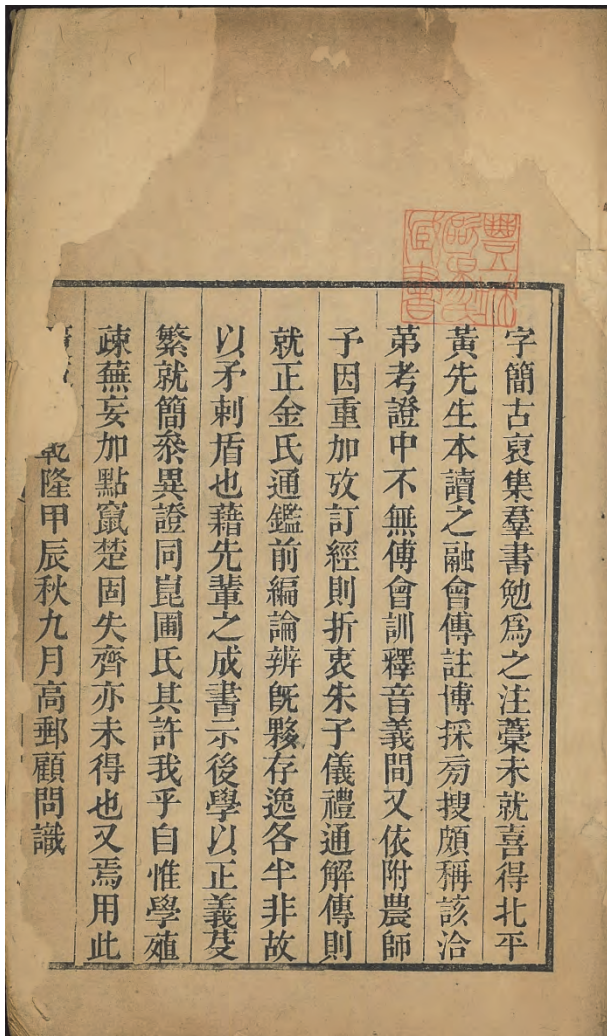 字簡古裒集羣書勉爲之注藁未就喜得北平
黃先生本讀之融會傳註博採旁搜頗稱該洽
苐考證中不無傅會訓釋音義間又依附農師
予因重加攷訂經則折衷朱子儀禮通解傳則
就正金氏通鑑前編論辨旣夥存逸各半非故
以矛刺盾也藉先輩之成書示後學以正義芟
繁就簡叅異證同崑圃氏其許我乎自惟學殖
疎蕪妄加點竄楚固失齊亦未得也又焉用此
乾隆甲辰秋九月高郵顧問識
藏書